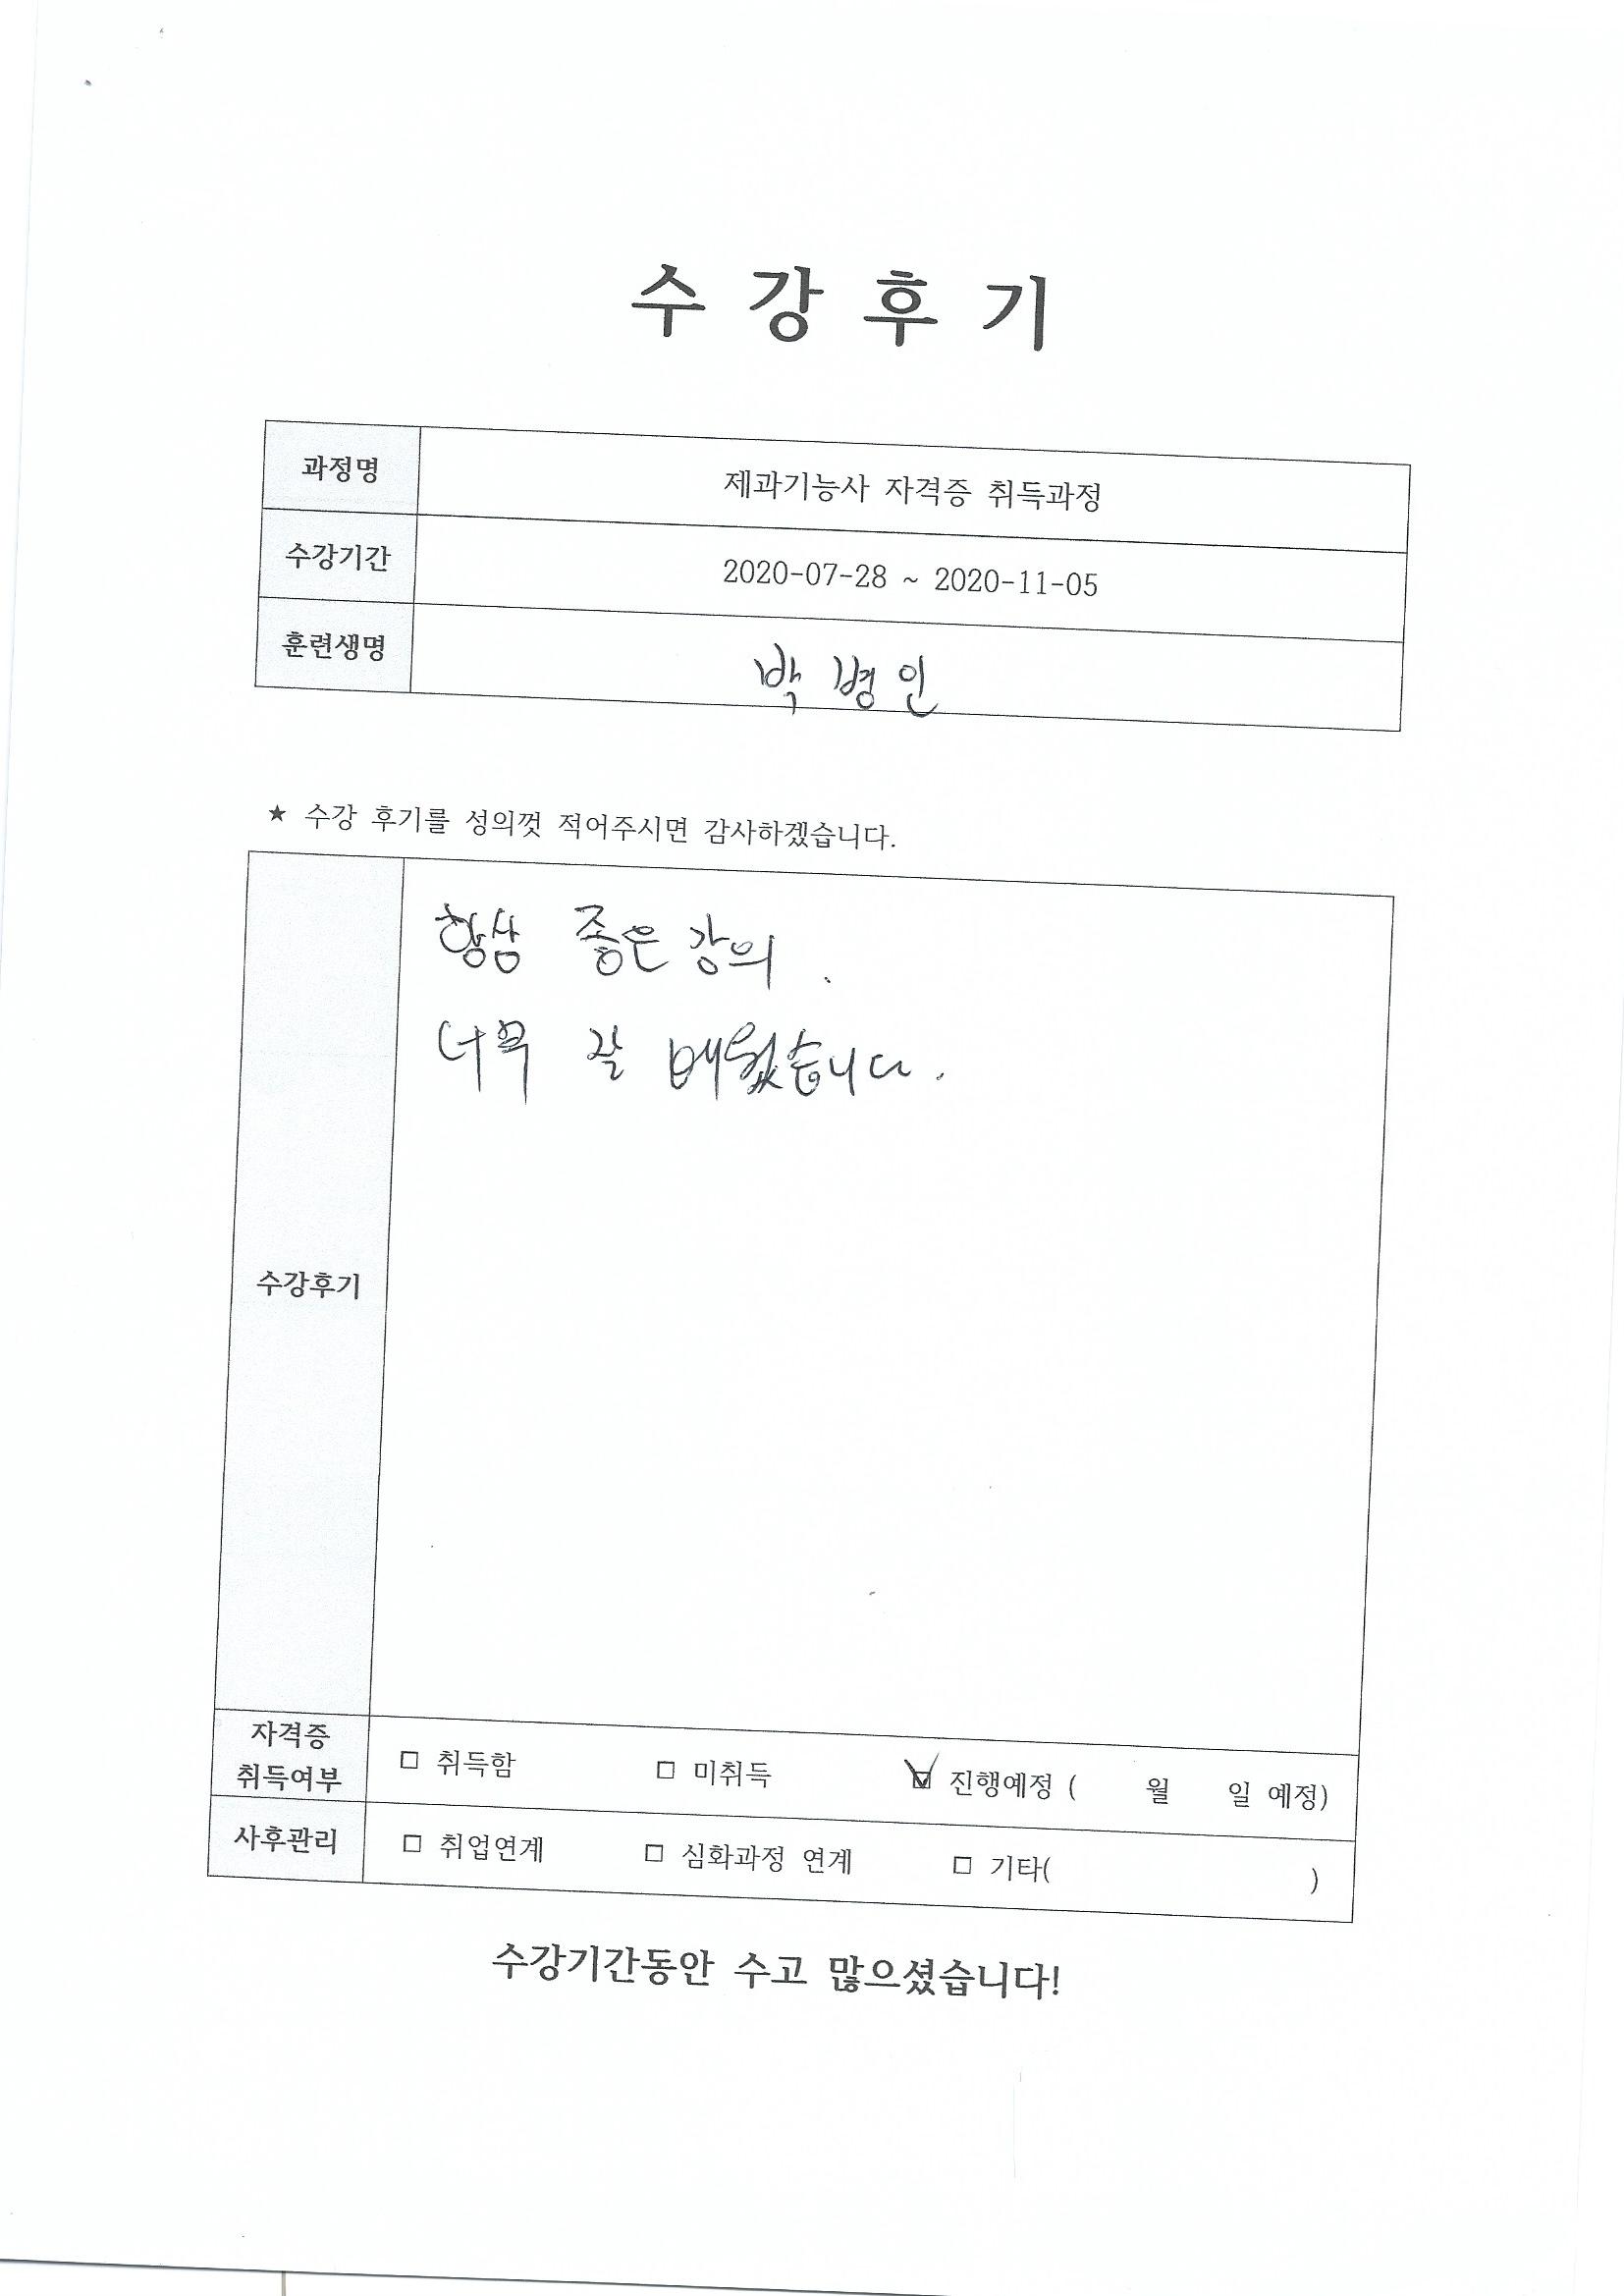 수 강 후 기
과정명 제과기능사 자격증 취득과정
수강기간 2020-07-28 ~ 2020-11-05
훈련생명 박 병 인
★ 수강 후기를 성의껏 적어주시면 감사하겠습니다.
항상 좋은 강의 .
너무 잘 배웠습니다.
수강후기
자격증
취득여부 □ 취득함 □ 미취득 ☑ 진행예정 ( 월 일 예정)
사후관리 □ 취업연계 □ 심화과정 연계 □ 기타( )
수강기간동안 수고 많으셨습니다!